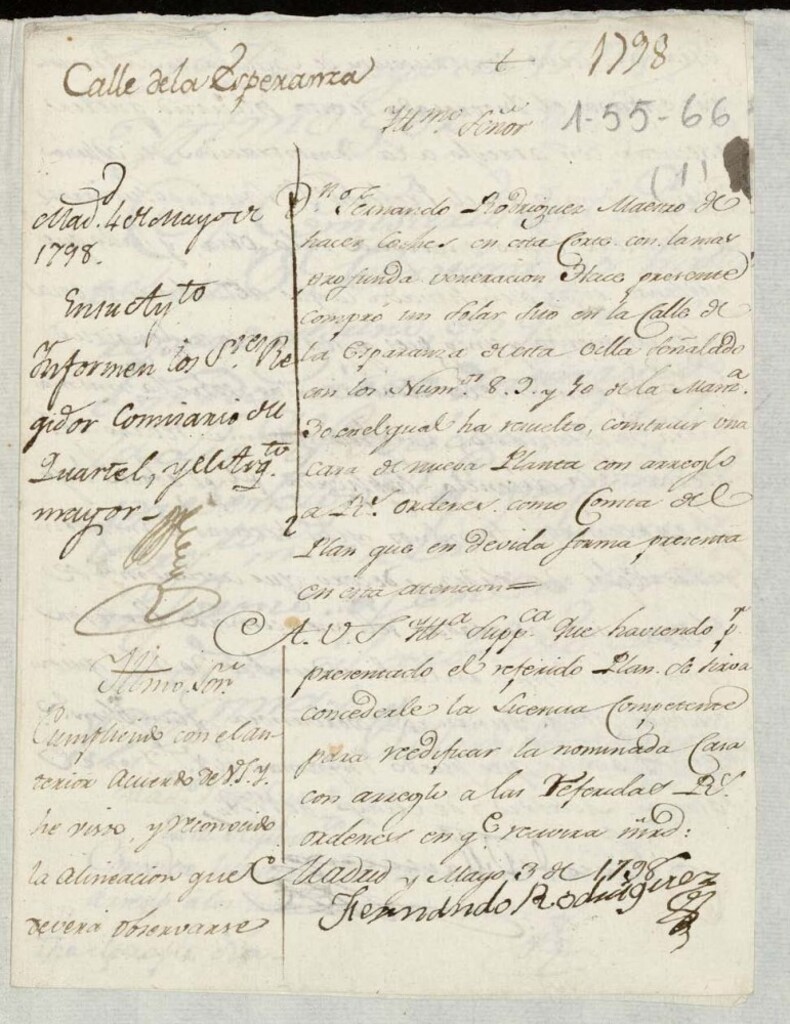 Calle dela Esperanza
1798
Yllmo Señor
1-55-66
(1)
Madd. 4 de Mayo de
1798.
En su Aytto
Informen los Sres Re
gidor Comisario del
Quartel, y el Arqto
mayor
Fernando Rodriguez Maestro de
hacer Coches en esta Corte con la mas
profunda veneracion Hace presente
compro un Solar Sito en la Calle de
la Esperanza de esta Villa señalado
con los Nums 8. 9. y 10 de la Manza.
30 en el qual ha resuelto, construir una
casa de nueva Planta con arreglo
a Rs. ordenes como Consta del
Plan que en devida forma presenta
en esta atencion=
A. V. S. Ylla Suppca Que haviendo
presentado el referido Plan. se sirva
concederle la Licencia Competente
para reedificar la nominada Casa
con arreglo a las Referidas Rs.
ordenes en qe recivira mrd:
Madrid y Mayo 3 de 1798
Fernando Rodriguez
Yllmo Sor.
Cumpliendo con el an-
terior Acuerdo de V.S.Y.
he visto, y reconocido
la alineacion que
devera observarse